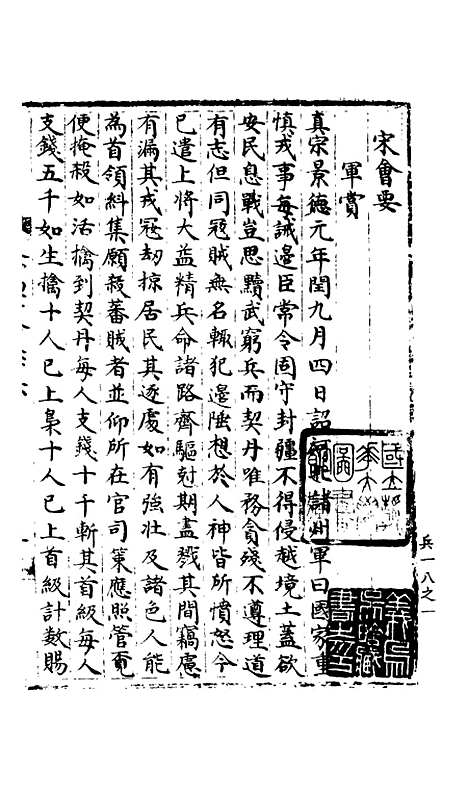 宋會要
軍賞
真宗景德元年閏九月四日詔河北諸州軍曰國家重
慎戎事每誡邊臣常令固守封疆不得侵越境土蓋欲
安民息戰豈思黷武窮兵而契丹唯務貪殘不遵理道
有志但同寇賊無名輒犯邊陲想於人神皆所憤怒今
已遣上將大益精兵命諸路齊驅尅期盡戮其間竊慮
有漏其戎寇刼掠居民其逐處如有強壯及諸色人能
為首領糾集願殺蕃賊者並仰所在官司策應照管乘
便掩殺如活擒到契丹每人支錢十千斬其首級每人
支錢五千如生擒十人已上梟十人已上首級計數賜
兵一八之一